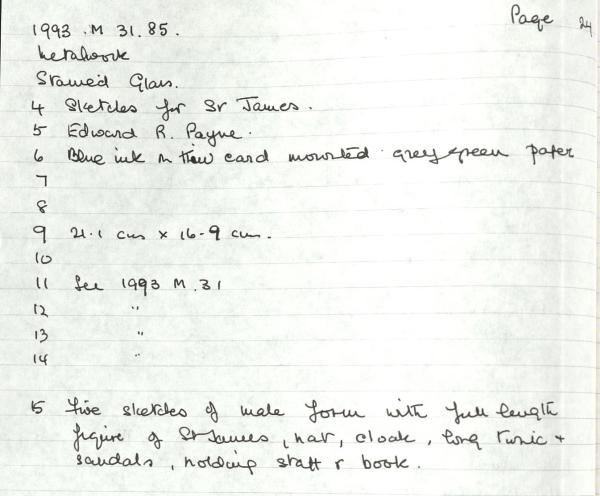 Page 24
1993 .M 31.85.
Metalwork
Stained Glass.
4 Sketches for St James.
5 Edward R. Payne.
6 Blue ink on thin card mounted grey green paper
7
8
9 21.1 cms x 16-9 cms.
10
11 See 1993 M.31
12 "
13 "
14 "
15 Five sketches of male form with full length
figure of St James, hat, cloak, long tunic +
sandals, holding staff & book.